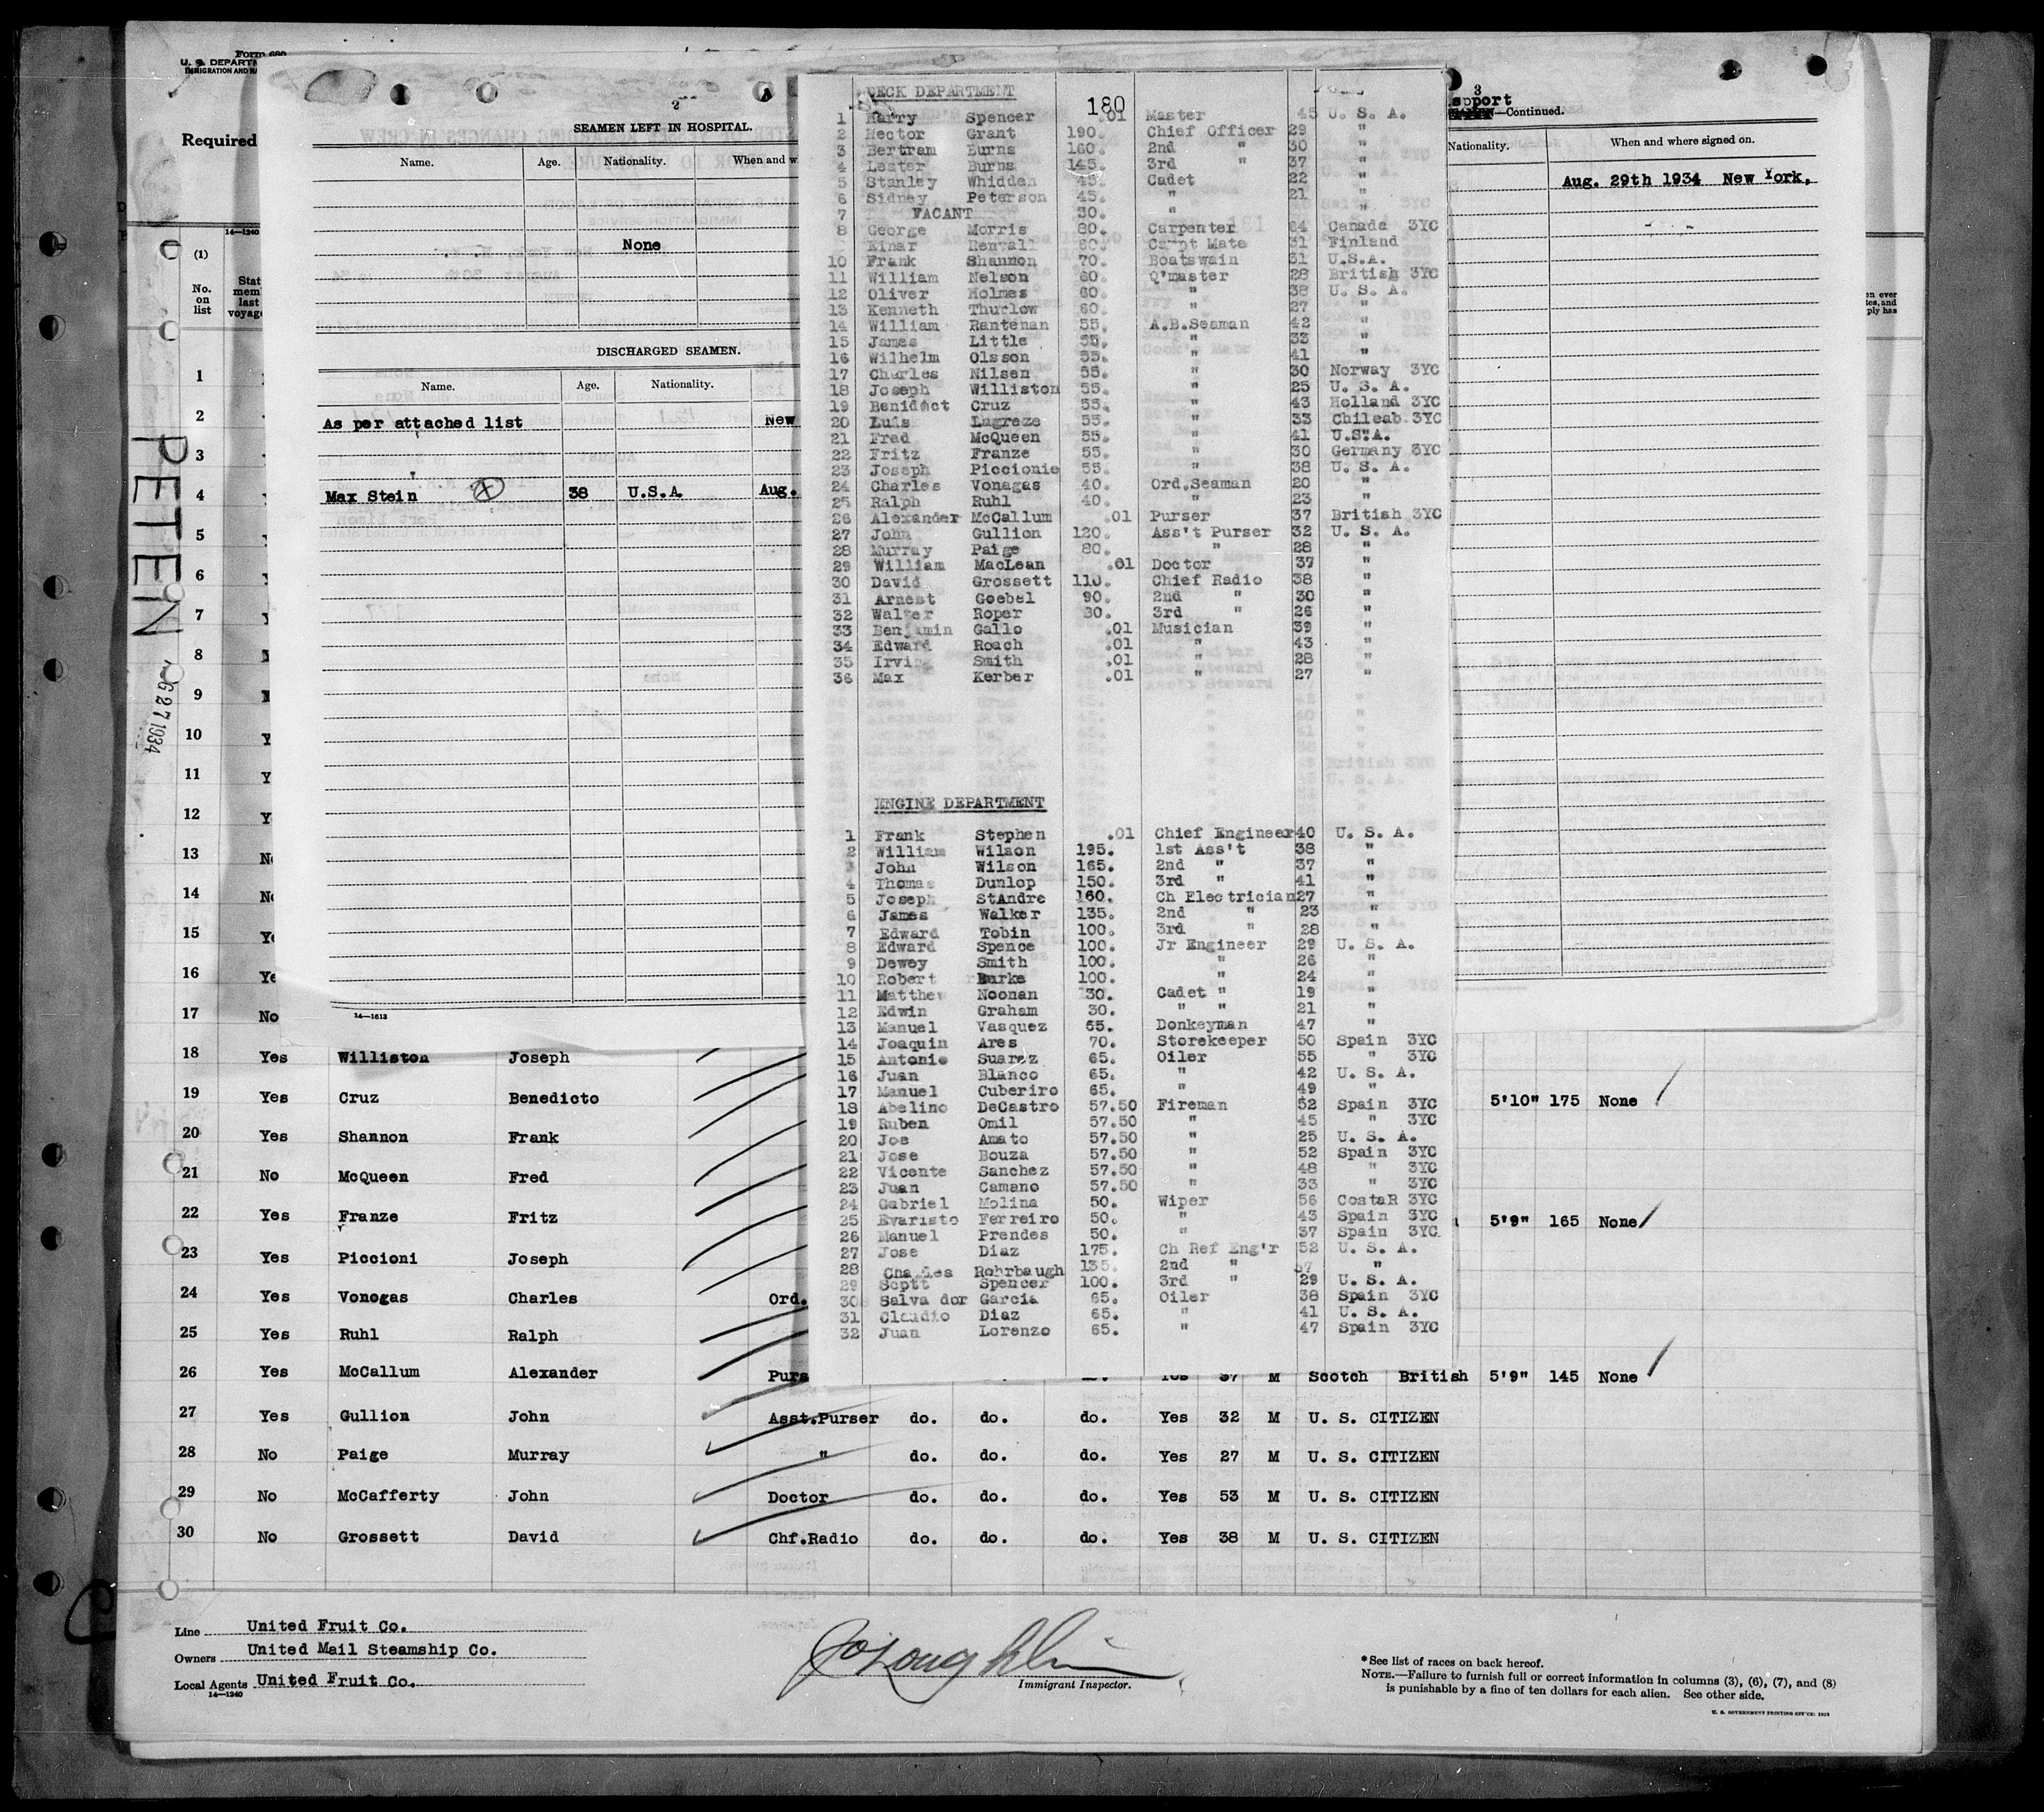 Form 680
U. S. DEPARTM
IMMIGRATION AND
Required
14—1240
(1)
No. on list
Stat mem last voyage
PETEN
G 27 1934
2
SEAMEN LEFT IN HOSPITAL.
Name. Age. Nationality. When and w
None
DISCHARGED SEAMEN.
Name. Age. Nationality.
As per attached list New
Max Stein 38 U.S.A. Aug.
14—1613
3
sport
—Continued.
Nationality. When and where signed on.
Aug. 29th 1934 New York,
en ever
tes, and
ply has
DECK DEPARTMENT
180
1 Harry Spencer .01 Master 45 U. S. A.
2 Hector Grant 190. Chief Officer 29 "
3 Bertram Burns 160. 2nd " 30 "
4 Lester Burns 145. 3rd " 37 "
5 Stanley Whidden 45. Cadet 22 "
6 Sidney Peterson 45. " 21 "
7 VACANT 30. " "
8 George Morris 80. Carpenter 64 Canada 3YC
Einar Renvall 60. Carpt Mate 31 Finland
10 Frank Shannon 70. Boatswain 31 U.S.A.
11 William Nelson 60. Q'master 28 British 3YC
12 Oliver Holmes 60. " 38 U. S. A.
13 Kenneth Thurlow 60. " 27 "
14 William Rantenan 55. A.B.Seaman 42 "
15 James Little 55. " 33 "
16 Wilhelm Olsson 55. " 41 "
17 Charles Nilsen 55. " 30 Norway 3YC
18 Joseph Williston 55. " 25 U. S. A.
19 Benidict Cruz 55. " 43 Holland 3YC
20 Luis Lagreze 55. " 33 Chileab 3YC
21 Fred McQueen 55. " 41 U.S.A.
22 Fritz Franze 55. " 30 Germany 3YC
23 Joseph Piccionie 55. " 38 U. S. A.
24 Charles Vonagas 40. Ord.Seaman 20 "
25 Ralph Ruhl 40. " 23 "
26 Alexander McCallum .01 Purser 37 British 3YC
27 John Gullion 120. Ass't Purser 32 U. S. A.
28 Murray Paige 80. " 28 "
29 William MacLean .01 Doctor 37 "
30 David Grossett 110. Chief Radio 38 "
31 Arnest Goebel 90. 2nd " 30 "
32 Walter Roper 80. 3rd " 26 "
33 Benjamin Gallo .01 Musician 39 "
34 Edward Roach .01 " 43 "
35 Irving Smith .01 " 28 "
36 Max Kerber .01 " 27 "
ENGINE DEPARTMENT
1 Frank Stephen .01 Chief Engineer 40 U. S. A.
2 William Wilson 195. 1st Ass't 38 "
3 John Wilson 165. 2nd " 37 "
4 Thomas Dunlop 150. 3rd " 41 "
5 Joseph StAndre 160. Ch Electrician 27 "
6 James Walker 135. 2nd " 23 "
7 Edward Tobin 100. 3rd " 28 "
8 Edward Spence 100. Jr Engineer 29 U. S. A.
9 Dewey Smith 100. " 26 "
10 Robert Burke 100. " 24 "
11 Matthew Noonan 30. Cadet " 19 "
12 Edwin Graham 30. " " 21 "
13 Manuel Vasquez 65. Donkeyman 47 "
14 Joaquin Ares 70. Storekeeper 50 Spain 3YC
15 Antonio Suarez 65. Oiler 55 " 3YC
16 Juan Blanco 65. " 42 U. S. A.
17 Manuel Cuberiro 65. " 49 "
18 Abelino DeCastro 57.50 Fireman 52 Spain 3YC
19 Ruben Omil 57.50 " 45 " 3YC
20 Joe Amato 57.50 " 25 U. S. A.
21 Jose Bouza 57.50 " 52 Spain 3YC
22 Vicente Sanchez 57.50 " 48 " 3YC
23 Juan Camano 57.50 " 33 " 3YC
24 Gabriel Molina 50. Wiper 56 CostaR 3YC
25 Evaristo Ferreiro 50. " 43 Spain 3YC
26 Manuel Prendes 50. " 37 Spain 3YC
27 Jose Diaz 175. Ch Ref Eng'r 52 U. S. A.
28 Charles Rohrbaugh 135. 2nd " 57 "
29 Scptt Spencer 100. 3rd " 29 U. S. A.
30 Salvador Garcia 65. Oiler 38 Spain 3YC
31 Claudio Diaz 65. " 41 U. S. A.
32 Juan Lorenzo 65. " 47 Spain 3YC
1
2
3
4
5
6
7
8
9
10 Y
11 Y
12 Y
13 No
14 No
15 Ye
16 Ye
17 No
18 Yes Williston Joseph
19 Yes Cruz Benedicto 5'10" 175 None
20 Yes Shannon Frank
21 No McQueen Fred
22 Yes Franze Fritz 5'9" 165 None
23 Yes Piccioni Joseph
24 Yes Vonogas Charles Ord.
25 Yes Ruhl Ralph
26 Yes McCallum Alexander Purs Yes 37 M Scotch British 5'9" 145 None
27 Yes Gullion John Asst.Purser do. do. do. Yes 32 M U. S. CITIZEN
28 No Paige Murray " do. do. do. Yes 27 M U. S. CITIZEN
29 No McCafferty John Doctor do. do. do. Yes 53 M U. S. CITIZEN
30 No Grossett David Chf.Radio do. do. do. Yes 38 M U. S. CITIZEN
Line United Fruit Co.
Owners United Mail Steamship Co.
Local Agents United Fruit Co.
14—1240
Immigrant Inspector.
*See list of races on back hereof.
NOTE.—Failure to furnish full or correct information in columns (3), (6), (7), and (8)
is punishable by a fine of ten dollars for each alien. See other side.
U. S. GOVERNMENT PRINTING OFFICE: 1929